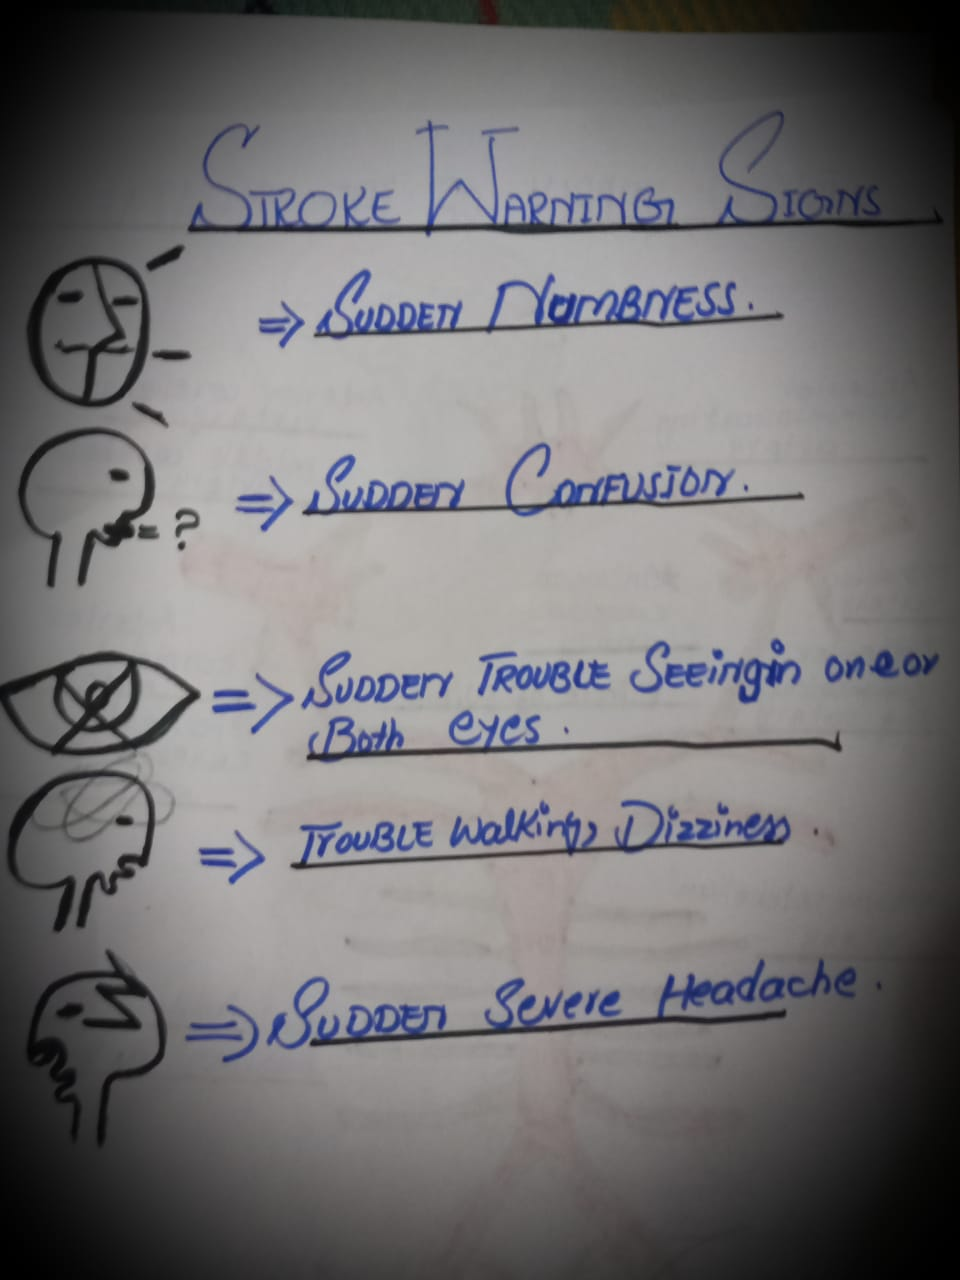 STROKE WARNING SIGNS
⇒ SUDDEN NUMBNESS.
= ? ⇒ SUDDEN CONFUSION.
⇒ SUDDEN TROUBLE SEEingin one or
Both eyes.
⇒ TROUBLE Walking, Dizziness.
⇒ SUDDEN Severe Headache.